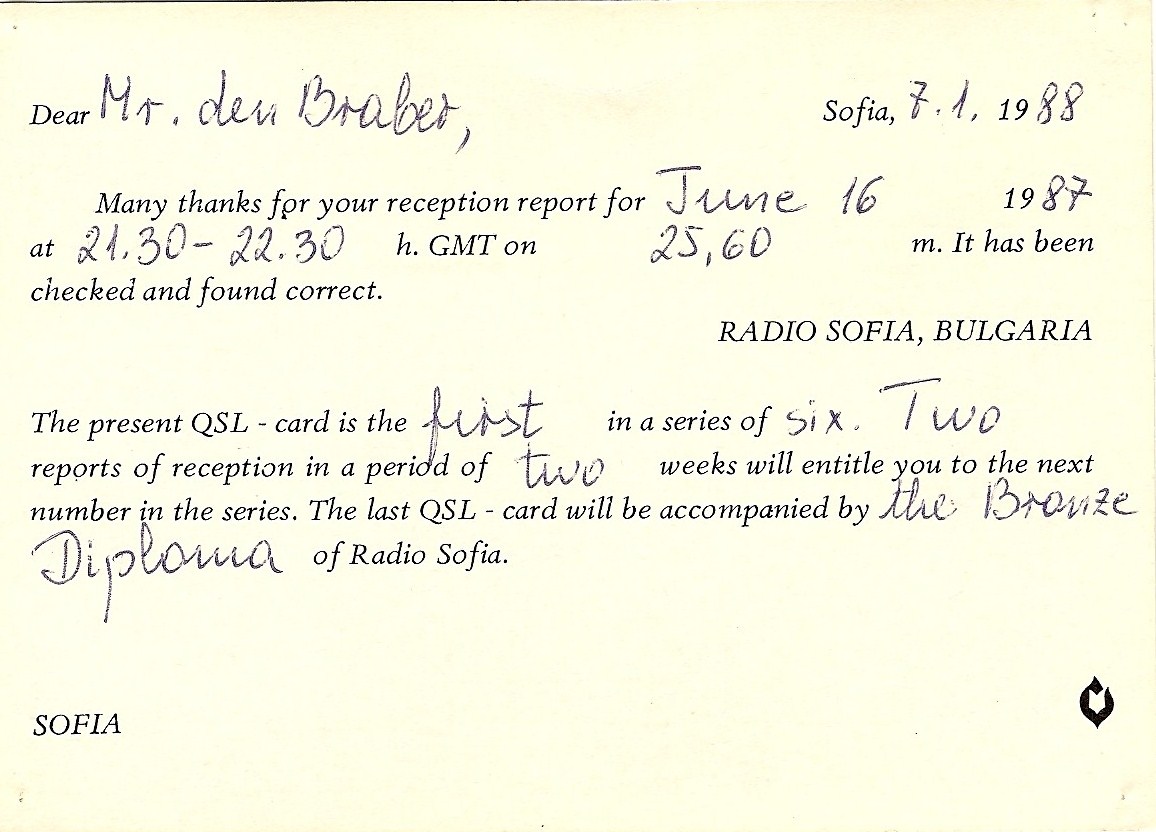 Dear Mr. den Braber, Sofia, 7.1. 1988
Many thanks for your reception report for June 16 1987
at 21.30- 22.30 h. GMT on 25,60 m. It has been
checked and found correct.
RADIO SOFIA, BULGARIA
The present QSL - card is the first in a series of six. Two
reports of reception in a period of two weeks will entitle you to the next
number in the series. The last QSL - card will be accompanied by the Bronze
Diploma of Radio Sofia.
SOFIA